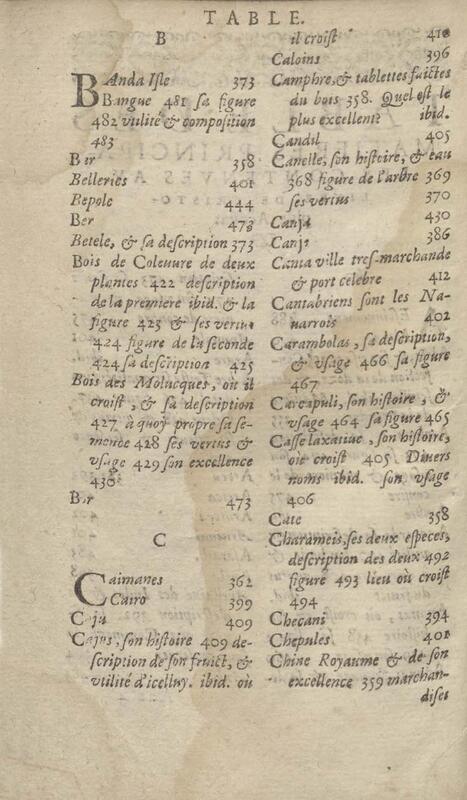 TABLE.
B
BAnda Isle 373
Bangue 481 sa figure
482 vtilité & composition
483
Bir 358
Belleries 401
Bepole 444
Ber 473
Betele, & sa description 373
Bois de Coleuure de deux
plantes 422 description
de la premiere ibid. & la
figure 423 & ses vertus
424 figure de la seconde
424 sa description 425
Bois des Molucques, où il
croist, & sa description
427 à quoy propre sa se-
mence 428 ses vertus &
vsage 429 son excellence
430
Bor 473
C
CAimanes 362
Cairo 399
Caju 409
Cajus, son histoire 409 de-
scription de son fruict, &
vtilité d'icelluy. ibid. où
il croist 410
Caloins 396
Camphre, & tablettes faictes
du bois 358. Quel est le
plus excellent? ibid.
Candil 405
Canelle, son histoire, & eau
368 figure de l'arbre 369
ses vertus 370
Canja 430
Canji 386
Canta ville tres-marchande
& port celebre 412
Cantabriens sont les Na-
uarrois 402
Carambolas, sa description,
& vsage 466 sa figure
467
Carcapuli, son histoire, &
vsage 464 sa figure 465
Casse laxatiue, son histoire,
où croist 405 Diuers
noms ibid. son vsage
406
Cate 358
Charameis, ses deux especes,
description des deux 492
figure 493 lieu où croist
494
Checani 394
Chepules 401
Chine Royaume & de son
excellence 359 marchan-
dises